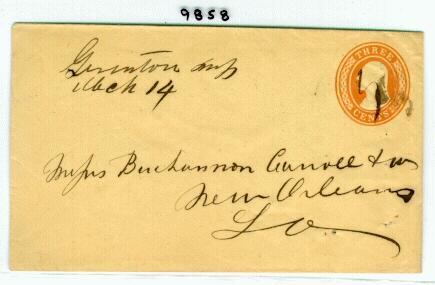 9858
THREE
CENTS
Mch 14
Messrs Buchannon Carroll & Co
New Orleans
La